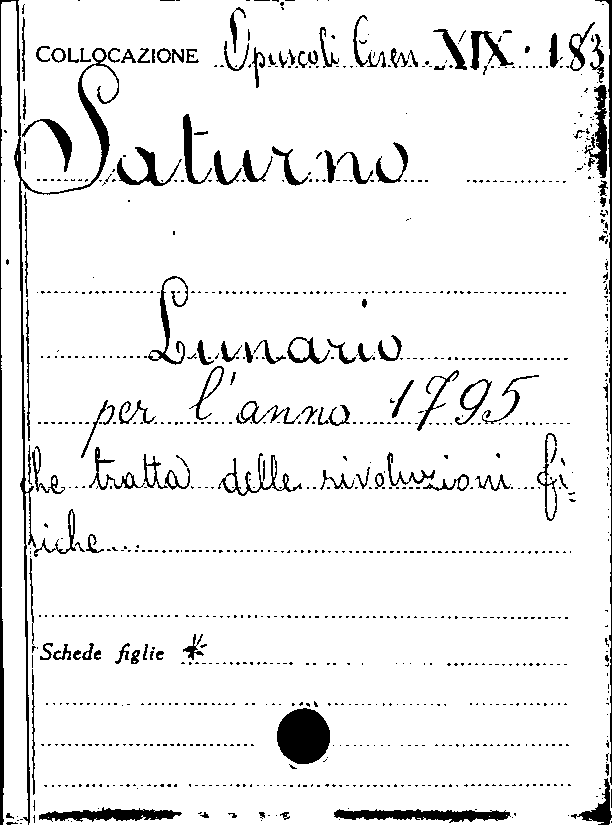 COLLOCAZIONE Opuscoli Cesen. XIX. 183
Saturno
Lunario
per l'anno 1795
che tratta delle rivoluzioni fi=
siche...
Schede figlie *